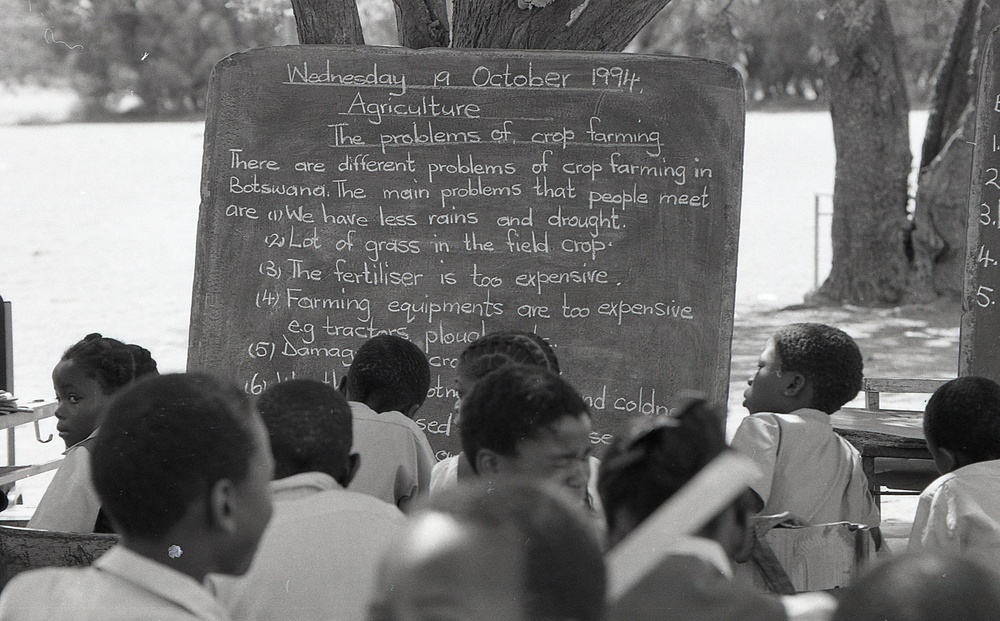 Wednesday 19 October 1994.
Agriculture
The problems of crop farming
There are different problems of crop farming in
Botswana. The main problems that people meet
are (1) We have less rains and drought.
(2) Lot of grass in the field crop.
(3) The fertiliser is too expensive.
(4) Farming equipments are too expensive
e.g tractors,
(5)
(6)
1.
2
3.
4.
5.